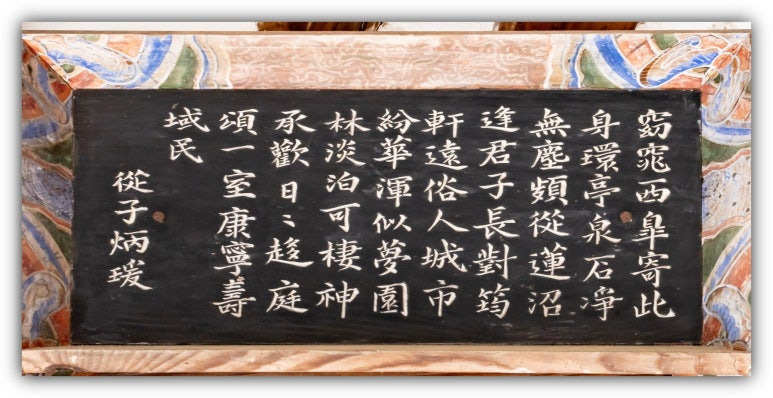 窈窕西臯寄此
身環亭泉石净
無塵頻從蓮沼
逢君子長對筠
軒遠俗人城市
紛華渾似夢園
林淡泊可棲神
承歡日〻趍庭
頌一室康寧壽
域民
從子炳瑗